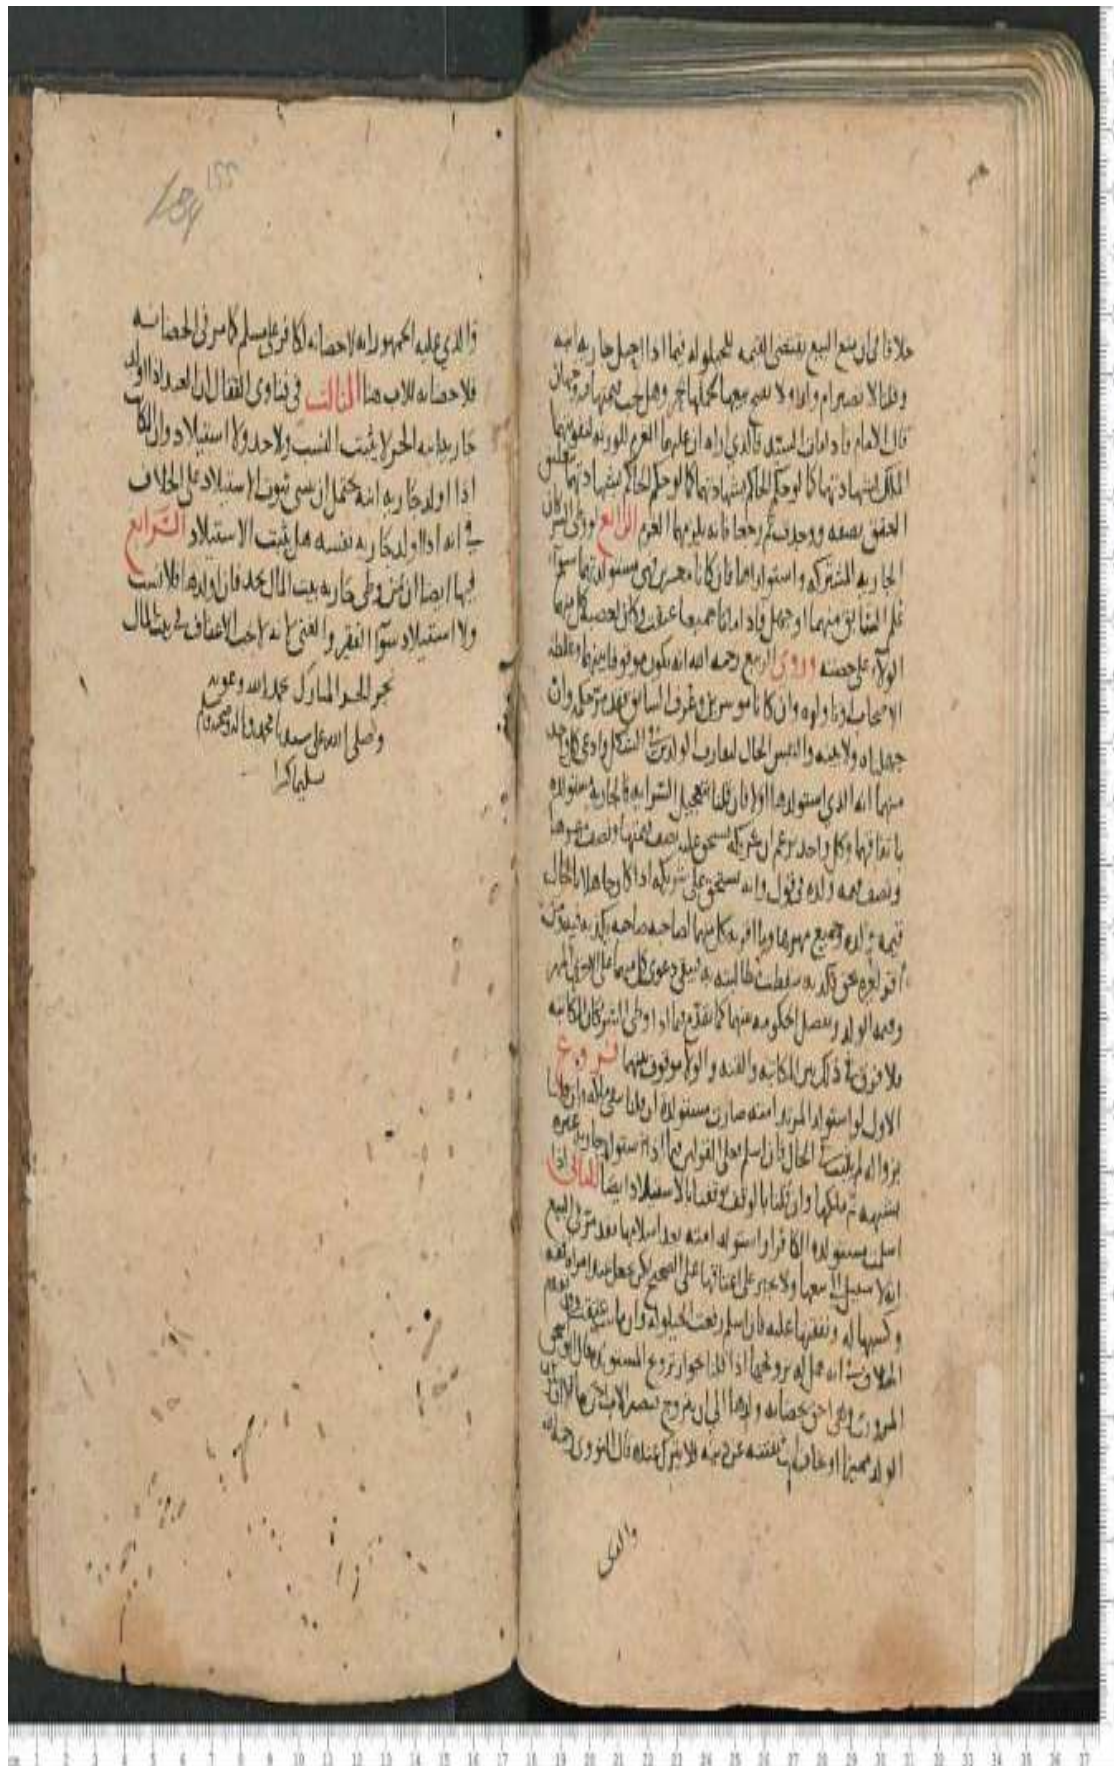 خلافا في ان منع البيع يقتضي القيمه للحيلوله فيما اذا احبل جاريه ابنه
وقلنا لا تصير ام ولد ولا يصح بيعها لحملها بحر وهل تجب قيمتها فيه وجهان
قال الامام فاذا مات السيد فالذي اراه ان عليهما الغرم للورثه لتفويتهما
الملك بشهادتهما كما لو حكم الحاكم بشهادتهما كما لو حكم الحاكم بشهادتهما بتعليق
العتق بصفه ووجدت ثم رجعا فانه يلزمهما الغرم الرابع لو وطى الشريكان
الجاريه المشتركه واستولداها فان كانا معسرين فهي مستولدتهما سوآ
علم السابق منهما او جهل فاذا ماتا جميعا عتقت وكان لعصبه كل منهما
الولاء على حصته وروى الربيع رحمه الله انه يكون موقوفا بينهما وغلطه
الاصحاب او تاولوه وان كانا موسرين وعرف السابق فقد مر حكمه وان
جهلناه ولا بينه والتبس الحال لتقارب الولدين في الشكل وادعى كل واحد
منهما انه الذي استولدها اولا فان قلنا بتعجيل السرايه فالجاريه مستولده
باتفاقهما وكل واحد يزعم ان شريكه يستحق عليه نصف قيمتها ونصف مهرها
ونصف قيمه ولده في قول وانه يستحق على شريكه اذا كان جاهلا بالحال
قيمه ولده وجميع مهرها وما اقر به كل منهما لصاحبه صاحبه يكذبه فيه ومن
اقر لغيره بحق فكذبه سقطت مطالبته به فيبقى دعوى كل منهما على الاخر المهر
وقيمه الولد وتفصل الحكومه بينهما كما تقدم فيما اذا وطى الشريكان المكاتبه
فلا فرق في ذلك بين المكاتبه والقنه والولاء موقوف بينهما فروع
الاول لو استولد المرتد امته صارت مستولده ان قلنا ببقى ملكه وان قلنا
بزواله لم يثبت في الحال فان اسلم فعلى القولين فيما اذا استولد جاريه غيره
بشبهه ثم ملكها وان قلنا بالوقف وقفنا الاستيلاد ايضا الثاني اذا
اسلمت مستولده الكافر او استولد امته بعد اسلامها فقد مر في البيع
انه لا سبيل الى بيعها ولا يجبر على اعتاقها على الصحيح لكن تجعل عند امراه ثقه
وكسبها له ونفقتها عليه فان اسلم رفعت الحيلوله وان مات عتقت وقد تقدم
الخلاف في انه هل له تزويجها اذا قلنا بجواز تزويج المستولده قال ابو اسحق
المروزي وهي احق بحضانه ولدها الى ان تتزوج فيصير الاب احق به الا ان
الولد مميزا او خاف ان يفتنه عن دينه فلا يترك عنده قال النووي رحمه الله
والذى
والذي عليه الجمهور انه لا حضانه لكافر على مسلم كما مر في الحضانه
فلا حضانه للاب هنا الثالث في فتاوى القفال ان العبد اذا اولد
جاريه ابنه الحر لا يثبت النسب ولا حد ولا استيلاد وان المكاتب
اذا اولد جاريه ابنه يحتمل ان يبنى ثبوت الاستيلاد على الخلاف
في انه اذا اولد جاريه نفسه هل يثبت الاستيلاد الرابع
فيها ايضا ان من وطى جاريه بيت المال يحد فان اولدها فلا نسب
ولا استيلاد سوآ الفقير والغني لانه لا يجب الاعفاف في بيت المال
نجز الجزء المبارك بحمد الله وعونه
وصلى الله على سيدنا محمد واله وصحبه وسلم
تسليما كثيرا
155